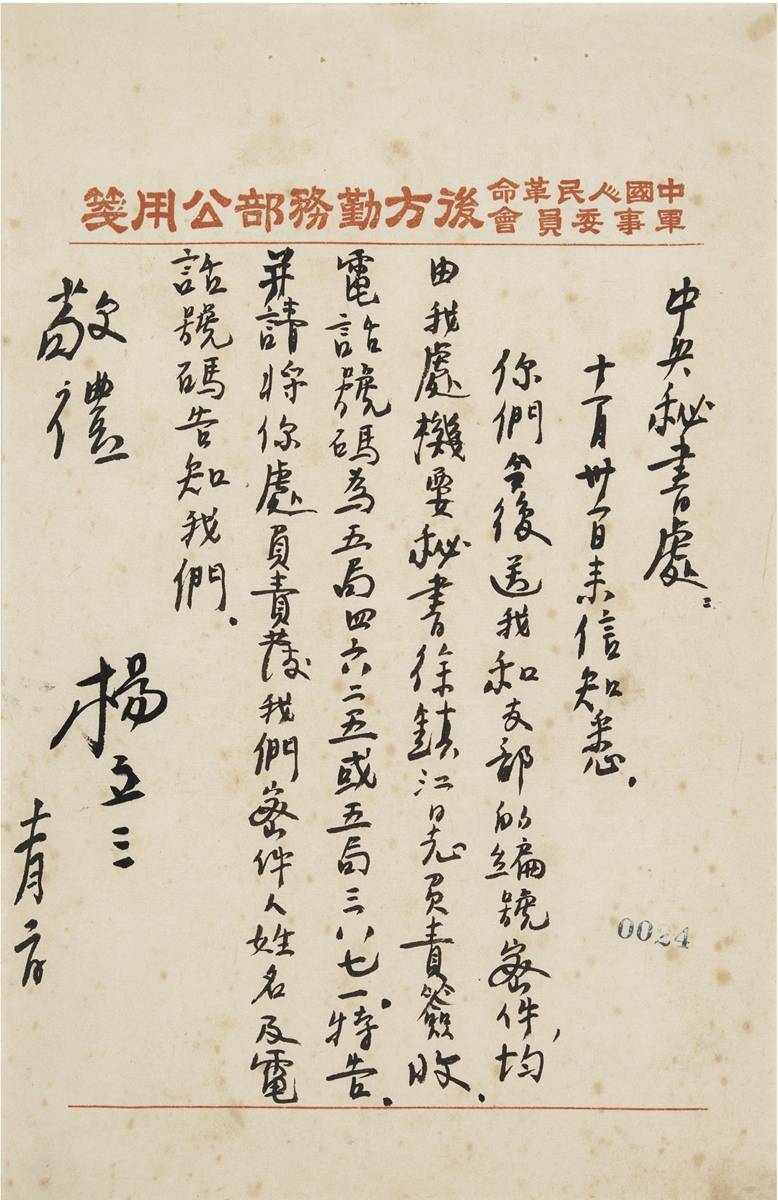 中國人民革命
軍事委員會
後方勤務部公用箋
中央秘書處：
十一月廿一日来信知悉．
你們今後送我和支部的编號密件，均
由我處機要秘書徐鎮江同志负責簽收．
電話號碼為五局四六二五或五局三八七一．特告．
并請將你處負責發我們密件人姓名及電
話號碼告知我們．
敬禮
楊立三
0024